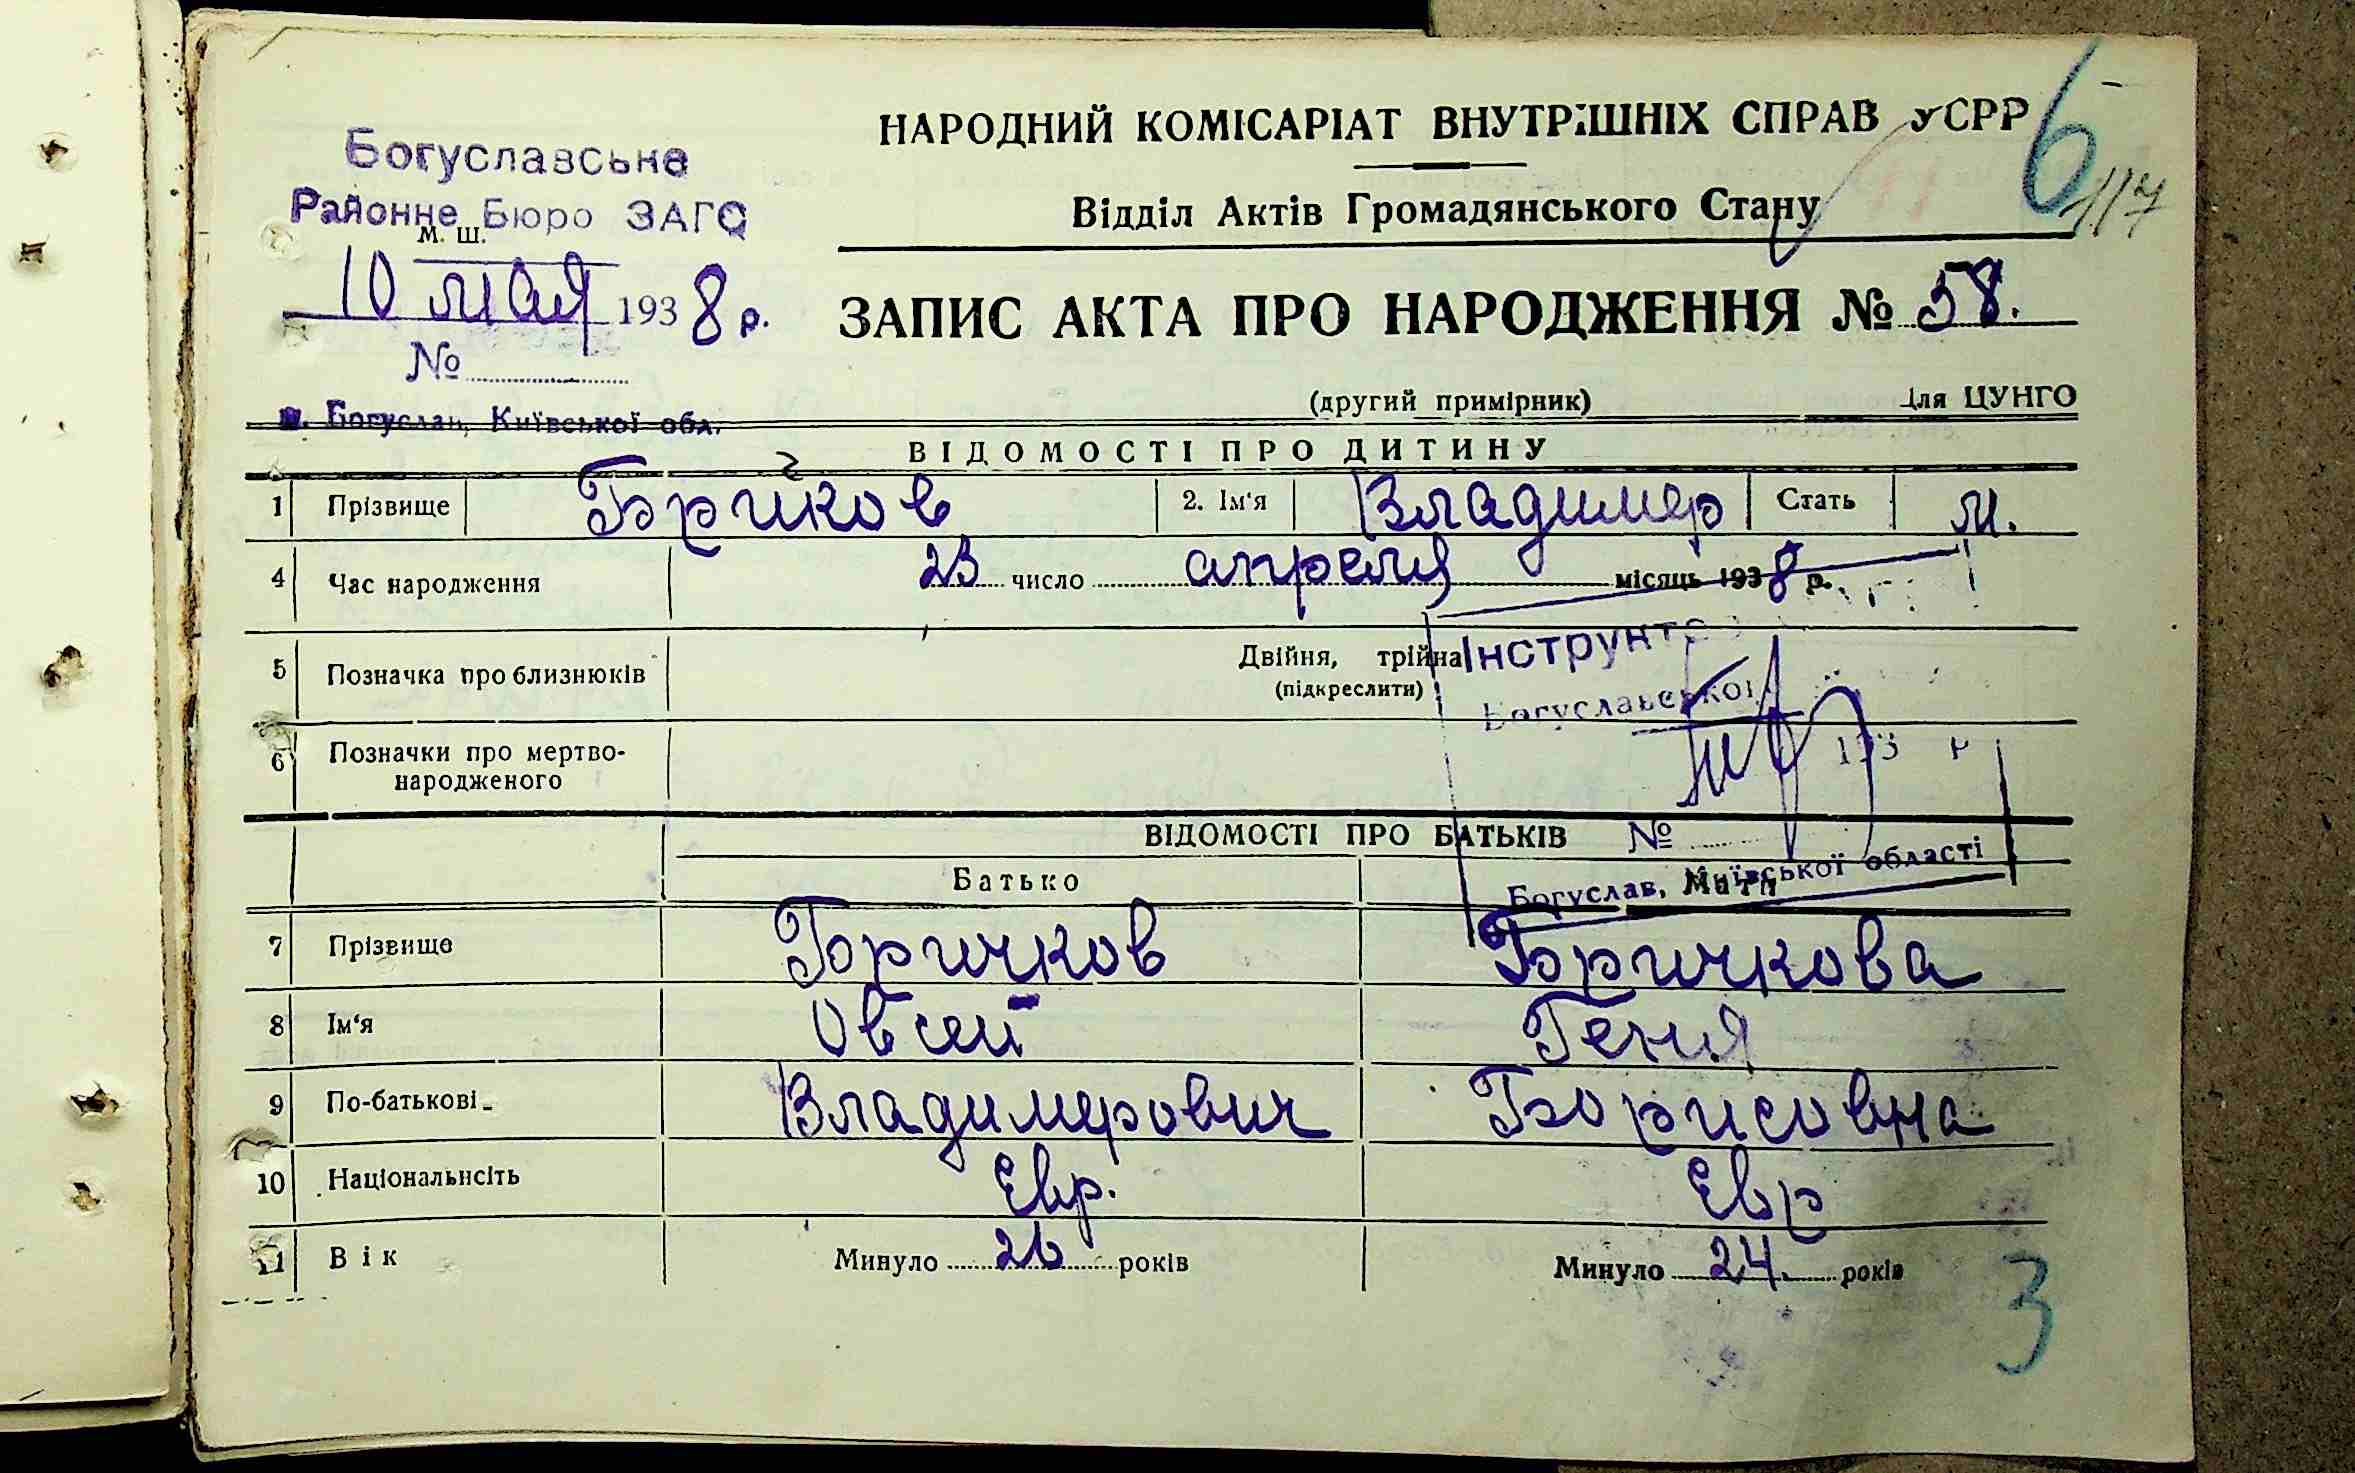 НАРОДНИЙ КОМІСАРІАТ ВНУТРІШНІХ СПРАВ УСРР
6
117
Відділ Актів Громадянського Стану
Богуславське
Районне Бюро ЗАГС
М. Ш.
10 мая 1938 р.
№
м. Богуслав, Київської обл.
ЗАПИС АКТА ПРО НАРОДЖЕННЯ № 58.
(другий примірник) Для ЦУНГО
ВІДОМОСТІ ПРО ДИТИНУ
1 Прізвище Бричков 2. Ім'я Владимер Стать м.
4 Час народження 23 число апреля місяць 1938 р.
5 Позначка про близнюків Двійня, трійна
(підкреслити)
Інструкто
Богуславської
193 р
№
Богуслав, Київської області
6 Позначки про мертво-
народженого
ВІДОМОСТІ ПРО БАТЬКІВ
Батько Мати
7 Прізвище Бричков Бричкова
8 Ім'я Овсей Геня
9 По-батькові Владимерович Борисовна
10 Національнсіть Евр. Евр
11 Вік Минуло 26 років Минуло 24 років
3